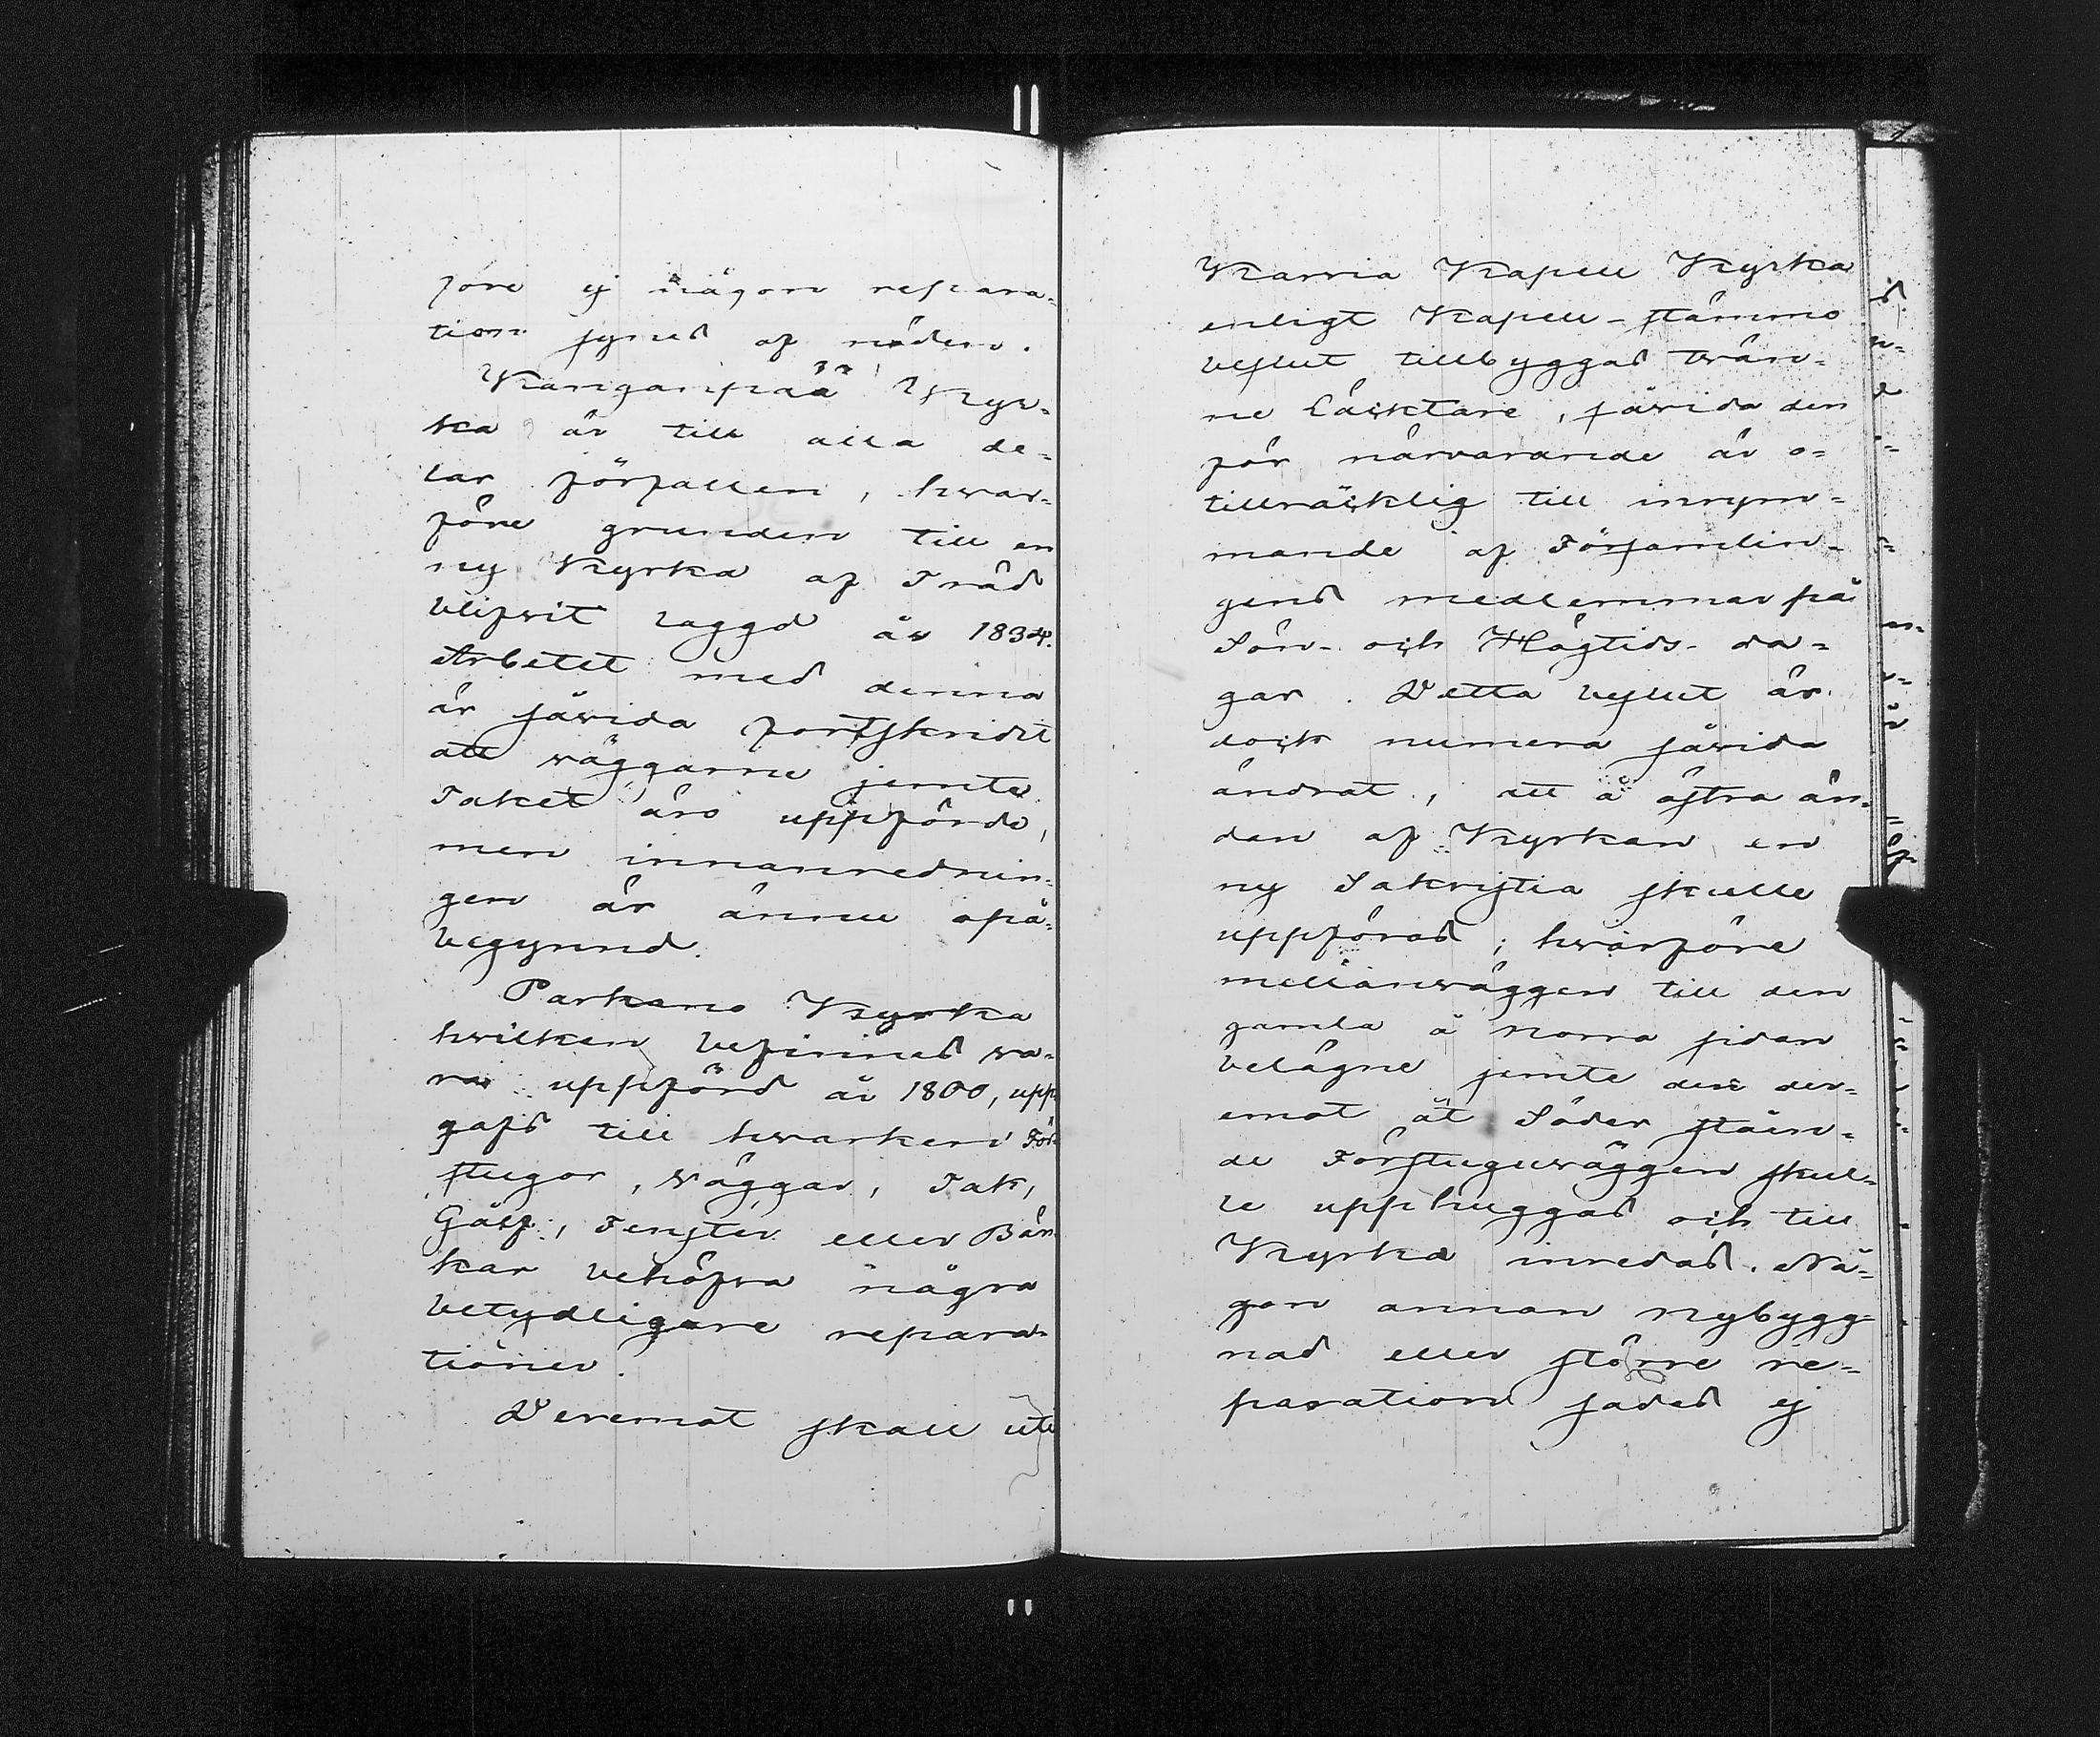 före ej någon repara-
tion synes af nöden.
Kanganpää Kyr-
ka är till alla de-
lar förfallen, hvar-
före grunden till en
ny Kyrka af Träd
blifvit laggd år 1834.
Arbetet med denna
är såvida fortskridit
att väggarne jemte
Taket äro uppförde,
men innanrednin-
gen är ännu opå-
begynnd.
Parkano Kyrka
hvilken befinnes va-
ra uppförd år 1800, upp-
gafs till hvarken För-
stugor, väggar, Tak,
Gålf, Fenster eller Bän-
kar behöfva några
betydligare repara-
tioner.
Deremot skall ute
Karvia Kapell Kyrka
enligt Kapell-stämmo
beslut tillbyggas trän-
ne Läcktare, såvida den
för närvarande är o-
tillräcklig till inrym-
mande af Församlin-
gens medlemmar på
Sön- och Högtids- da-
gar. Detta beslut är
dock numera såvida
ändrat, att å östra än-
dan af Kyrkan en
ny Sakristia skulle
uppföras; hvarföre
mellanväggen till den
gamla å norra sidan
belägne jemte den der-
emot åt Söder ståen-
de Förstuguväggen skul-
le upphuggas och till
Kyrka inredas. Nå-
gon annan nybygg-
nad eller större re-
paration sades ej